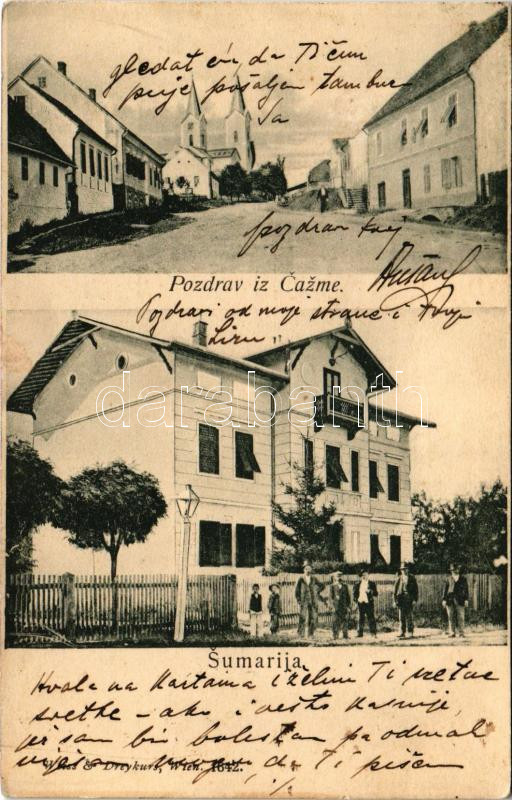 gledat ću da Ti čim
prije pošaljem tambur
Sa
pozdrav tvoj
Pozdrav iz Čažme.
Pozdravi od moje strane i Tvoju
darabanth
Šumarija.
Hvala na kartama i želim Ti sretne
svetke - ako i nešto kasnije,
jer sam bio bolestan pa odmah
da Ti pišem
Weiss & Dreykurs, Wien. 1842.